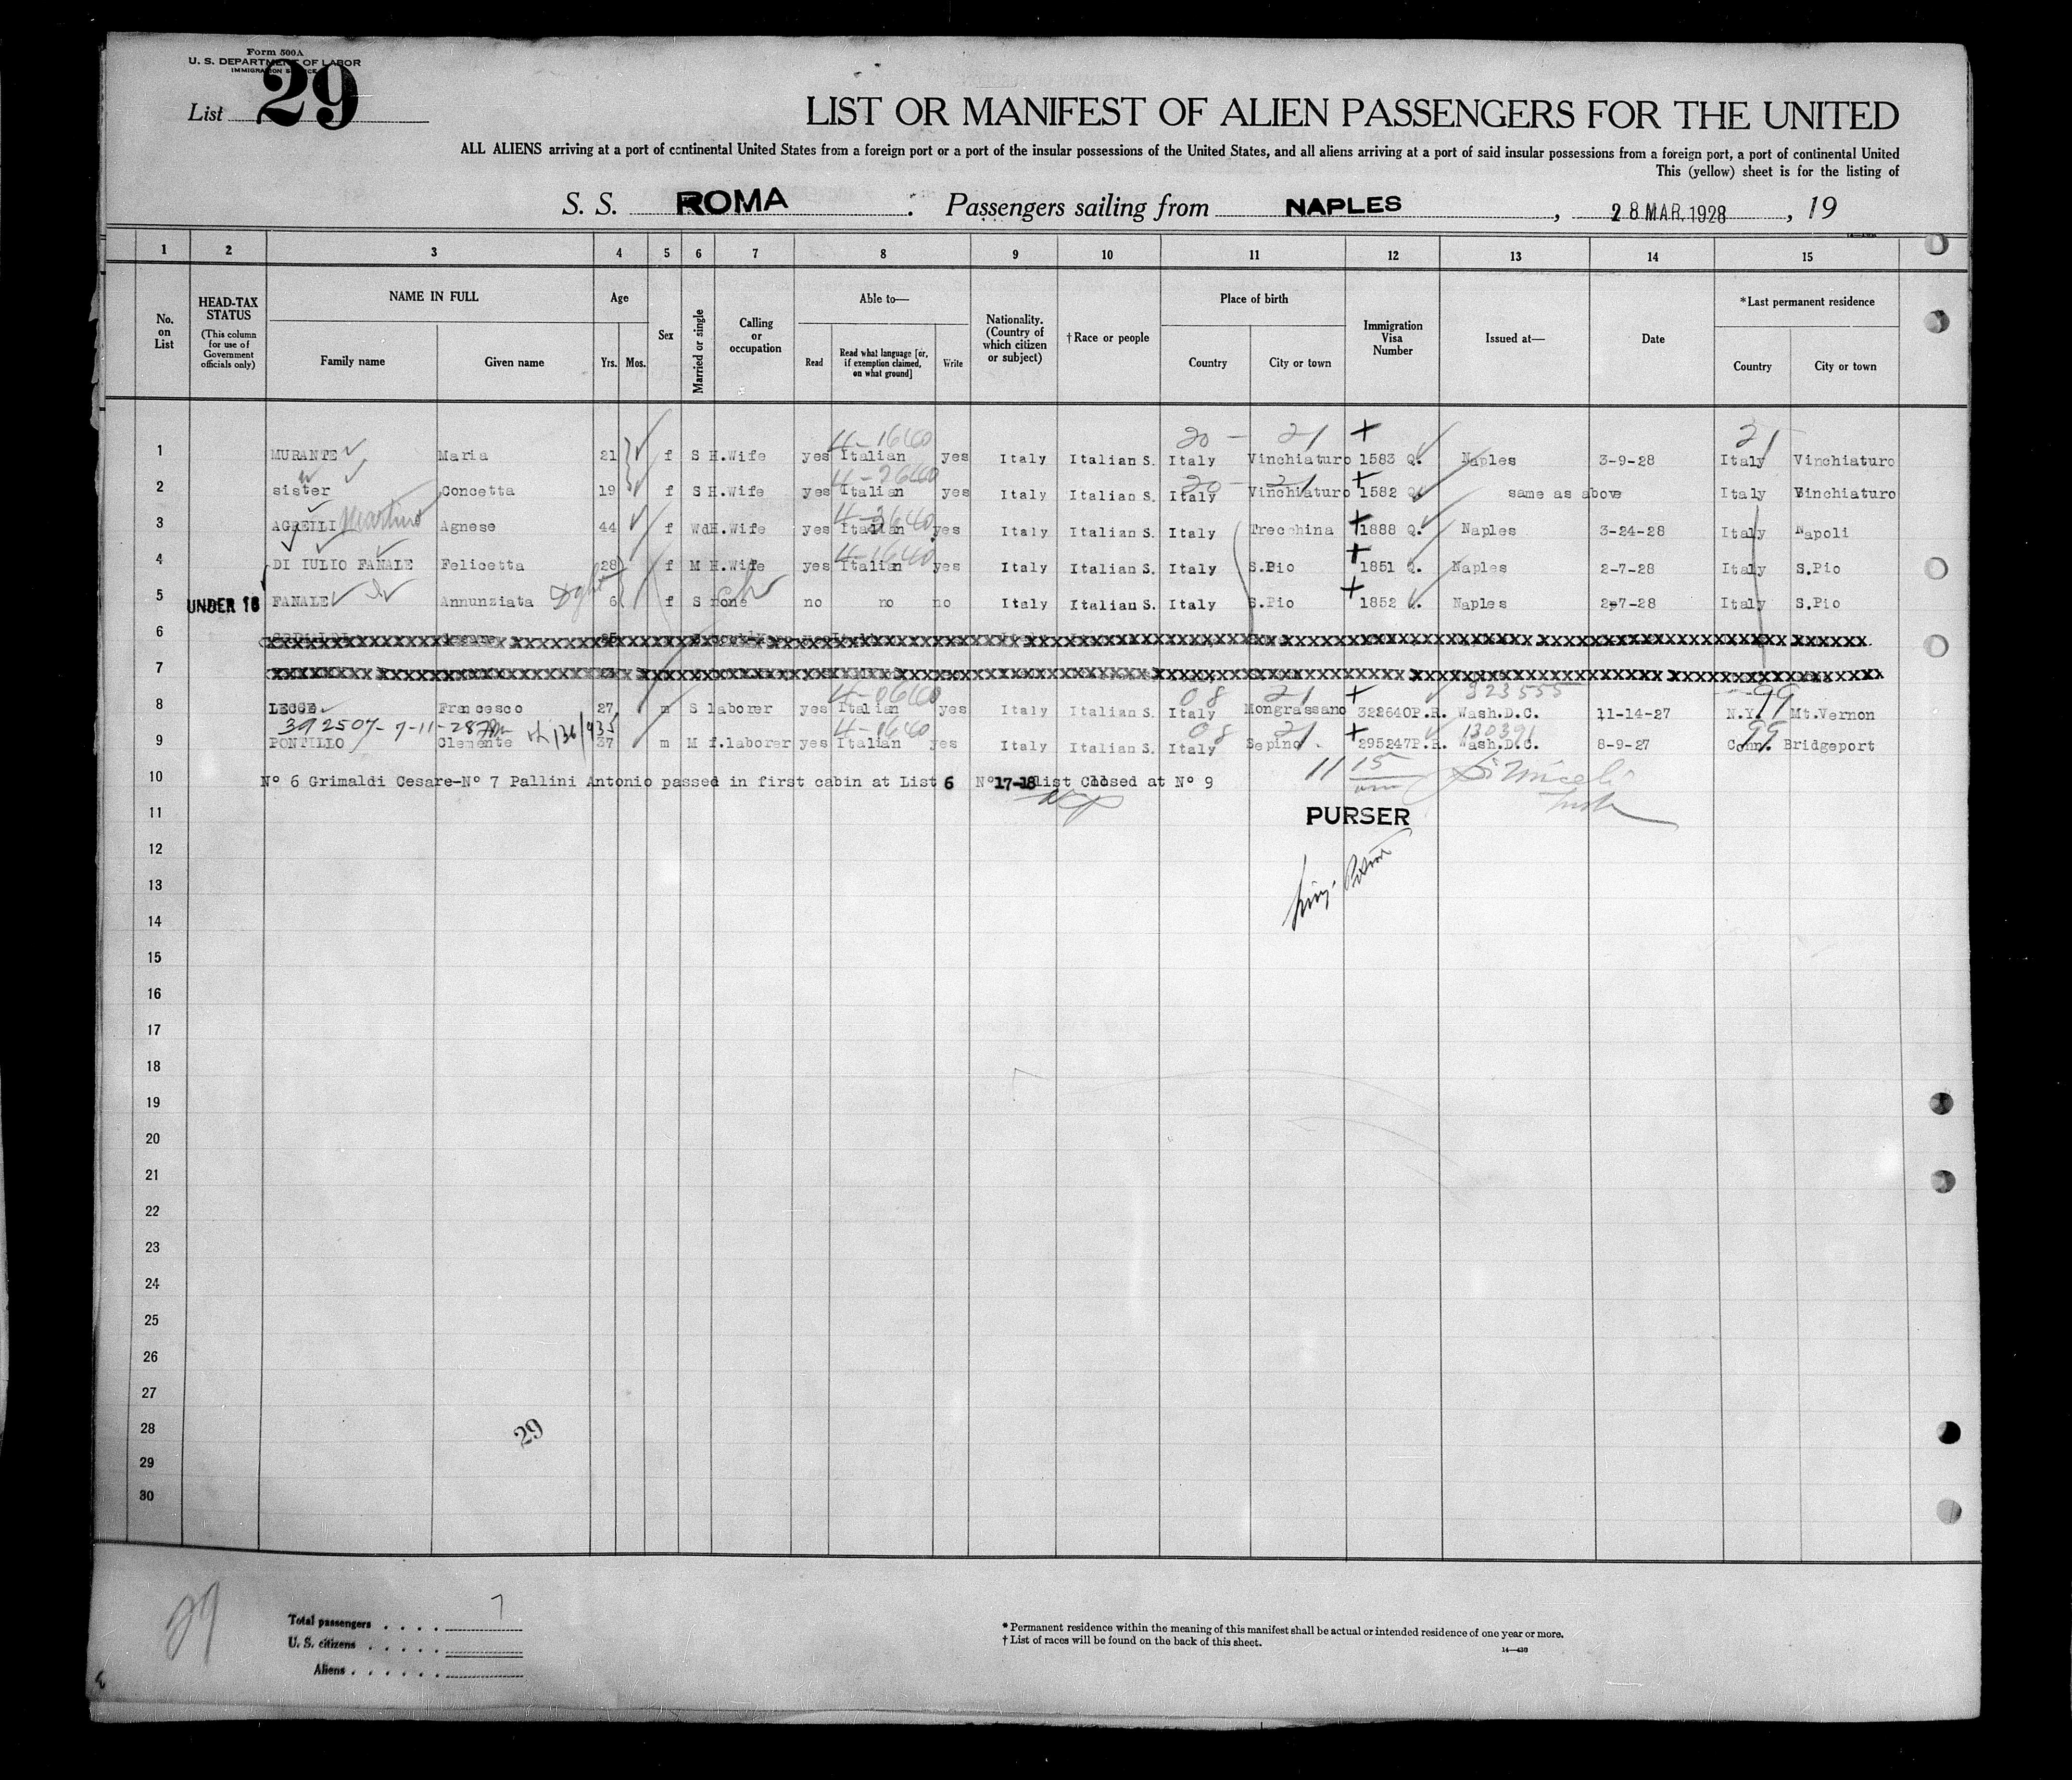 Form 500A
U. S. DEPARTMENT OF LABOR
IMMIGRATION SERVICE
List 29
LIST OR MANIFEST OF ALIEN PASSENGERS FOR THE UNITED
ALL ALIENS arriving at a port of continental United States from a foreign port or a port of the insular possessions of the United States, and all aliens arriving at a port of said insular possessions from a foreign port, a port of continental United
This (yellow) sheet is for the listing of
S. S. ROMA Passengers sailing from NAPLES, 28 MAR. 1928, 19
1 2 3 4 5 6 7 8 9 10 11 12 13 14 15
No. on List
HEAD-TAX STATUS (This column for use of Government officials only)
NAME IN FULL
Family name Given name
Age
Yrs. Mos.
Sex
Married or single
Calling or occupation
Able to—
Read Read what language [or, if exemption claimed, on what ground] Write
Nationality. (Country of which citizen or subject)
†Race or people
Place of birth
Country City or town
Immigration Visa Number
Issued at—
Date
*Last permanent residence
Country City or town
4-1640 20 - 21 + 21
1 MURANTE Maria 21 f S H.Wife yes Italian yes Italy Italian S. Italy Vinchiaturo 1583 Q. Naples 3-9-28 Italy Vinchiaturo
4-2640 20 - 21 +
2 sister Concetta 19 f S H.Wife yes Italian yes Italy Italian S. Italy Vinchiaturo 1582 Q. same as above Italy Vinchiaturo
3 AGRELLI Martino Agnese 44 f Wd H.Wife yes Italian yes Italy Italian S. Italy Trecchina +1888 Q. Naples 3-24-28 Italy Napoli
4-1640 +
4 DI IULIO FANALE Felicetta 28 f M H.Wife yes Italian yes Italy Italian S. Italy S.Pio 1851 Q. Naples 2-7-28 Italy S.Pio
5 UNDER 16 FANALE Annunziata 6 f S none no no no Italy Italian S. Italy S.Pio +1852 Naples 2-7-28 Italy S.Pio
6
7
4-0640 08 21 + 323555 99
8 LECCE Francesco 27 m S laborer yes Italian yes Italy Italian S. Italy Mongrassano 322640P.R. Wash.D.C. 11-14-27 N.Y. Mt.Vernon
392507- 7-11-28 4-0640 08 21 + 130391 99
9 PONTILLO Clemente 37 m M f.laborer yes Italian yes Italy Italian S. Italy Sepino 295247P.R. Wash.D.C. 8-9-27 Conn. Bridgeport
10 Nº 6 Grimaldi Cesare-Nº 7 Pallini Antonio passed in first cabin at List 6 Nº 17-18 list Closed at Nº 9
11 PURSER
12
13
14
15
16
17
18
19
20
21
22
23
24
25
26
27
28 29
29
30
29
Total passengers . . . . 7
U. S. citizens . . . . .
Aliens . . . . . .
* Permanent residence within the meaning of this manifest shall be actual or intended residence of one year or more.
† List of races will be found on the back of this sheet.
14—430